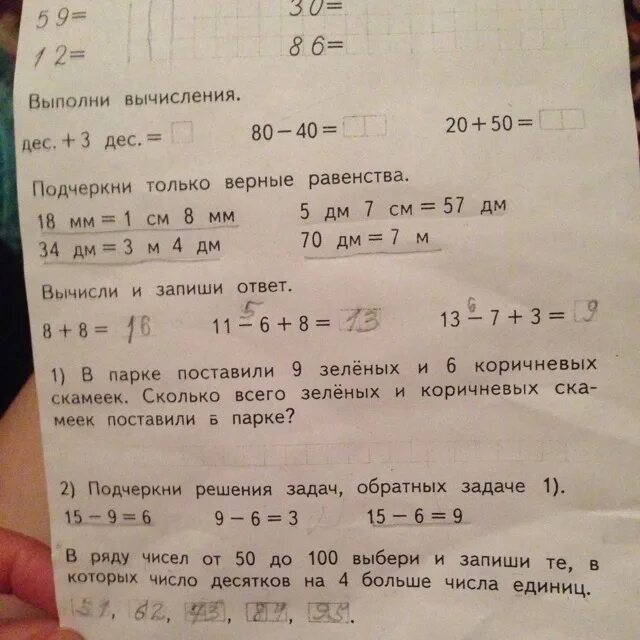 59= 30=
12= 86=
Выполни вычисления.
дес. + 3 дес. = 80 − 40 = 20 + 50 =
Подчеркни только верные равенства.
18 мм = 1 см 8 мм 5 дм 7 см = 57 дм
34 дм = 3 м 4 дм 70 дм = 7 м
Вычисли и запиши ответ.
5 6
8 + 8 = 16 11 − 6 + 8 = 13 13 − 7 + 3 = 9
1) В парке поставили 9 зелёных и 6 коричневых
скамеек. Сколько всего зелёных и коричневых ска-
меек поставили в парке?
2) Подчеркни решения задач, обратных задаче 1).
15 − 9 = 6 9 − 6 = 3 15 − 6 = 9
В ряду чисел от 50 до 100 выбери и запиши те, в
которых число десятков на 4 больше числа единиц.
51, 62, 73, 84, 95.